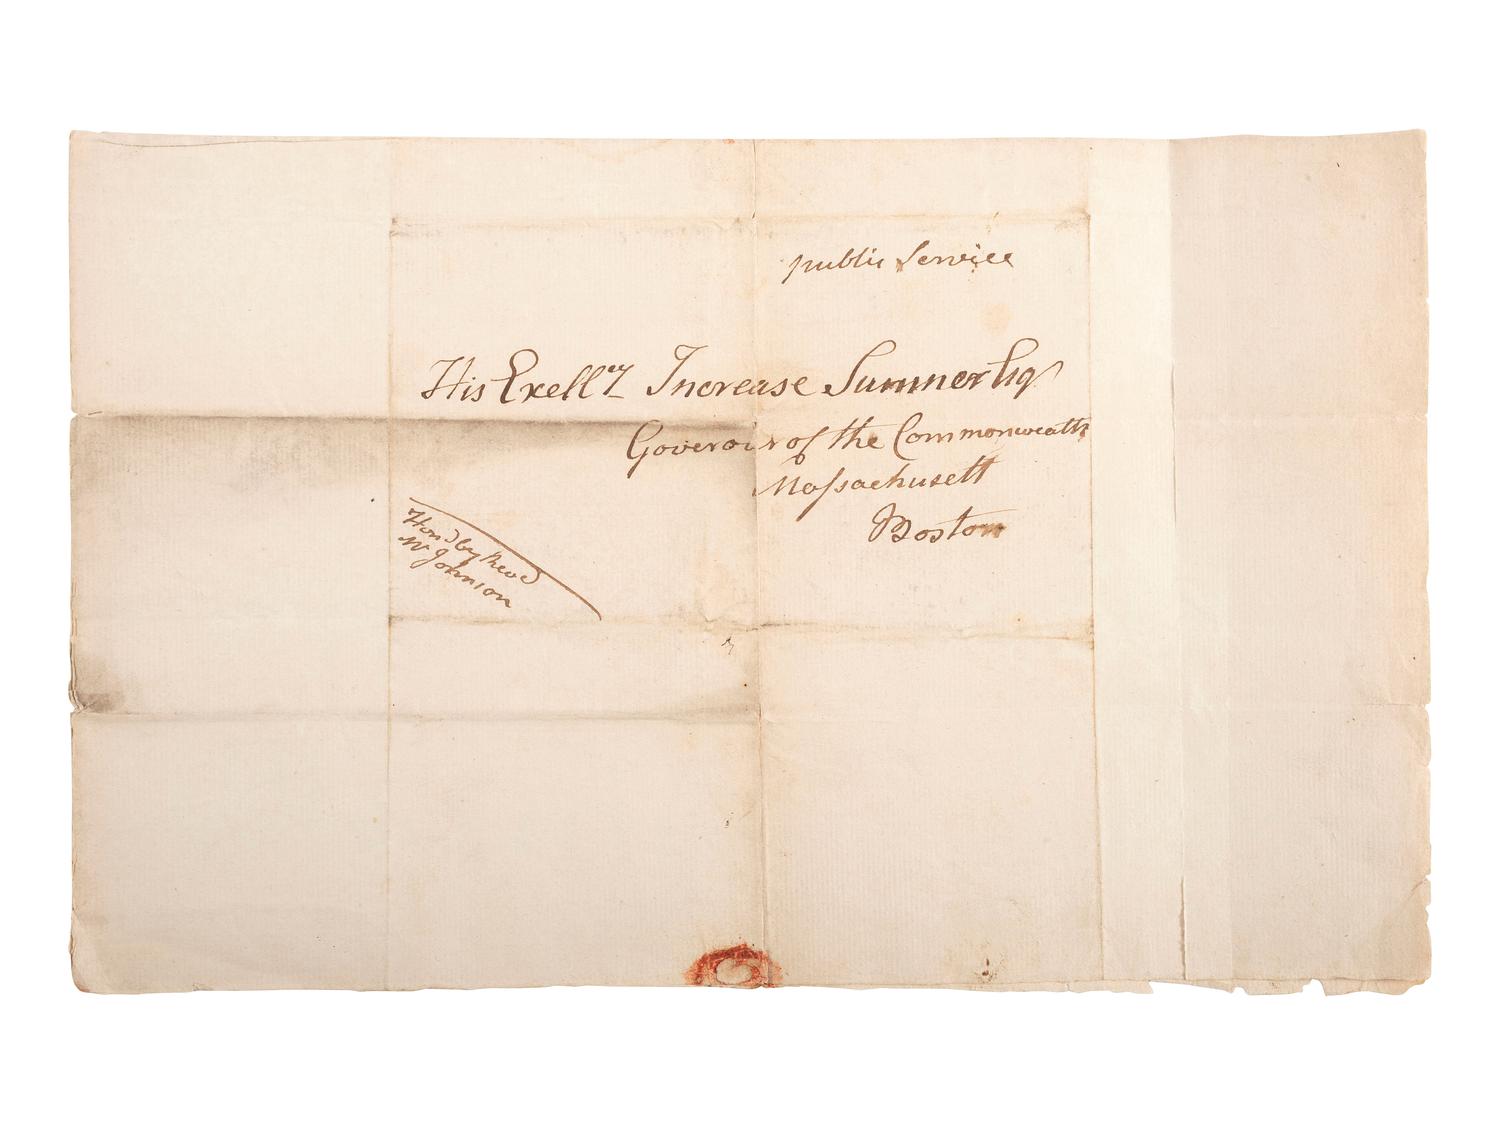 public Service
His Exelly Increase Sumner Esq
Governor of the Commonwealth
Massachusett
Boston
Hond by Revd
Mr Johnson